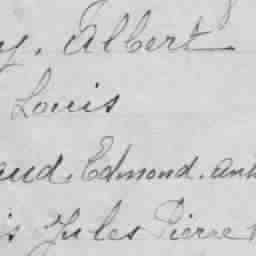 y. Albert
Louis
aud. Edmond. ant
is Jules Pierre